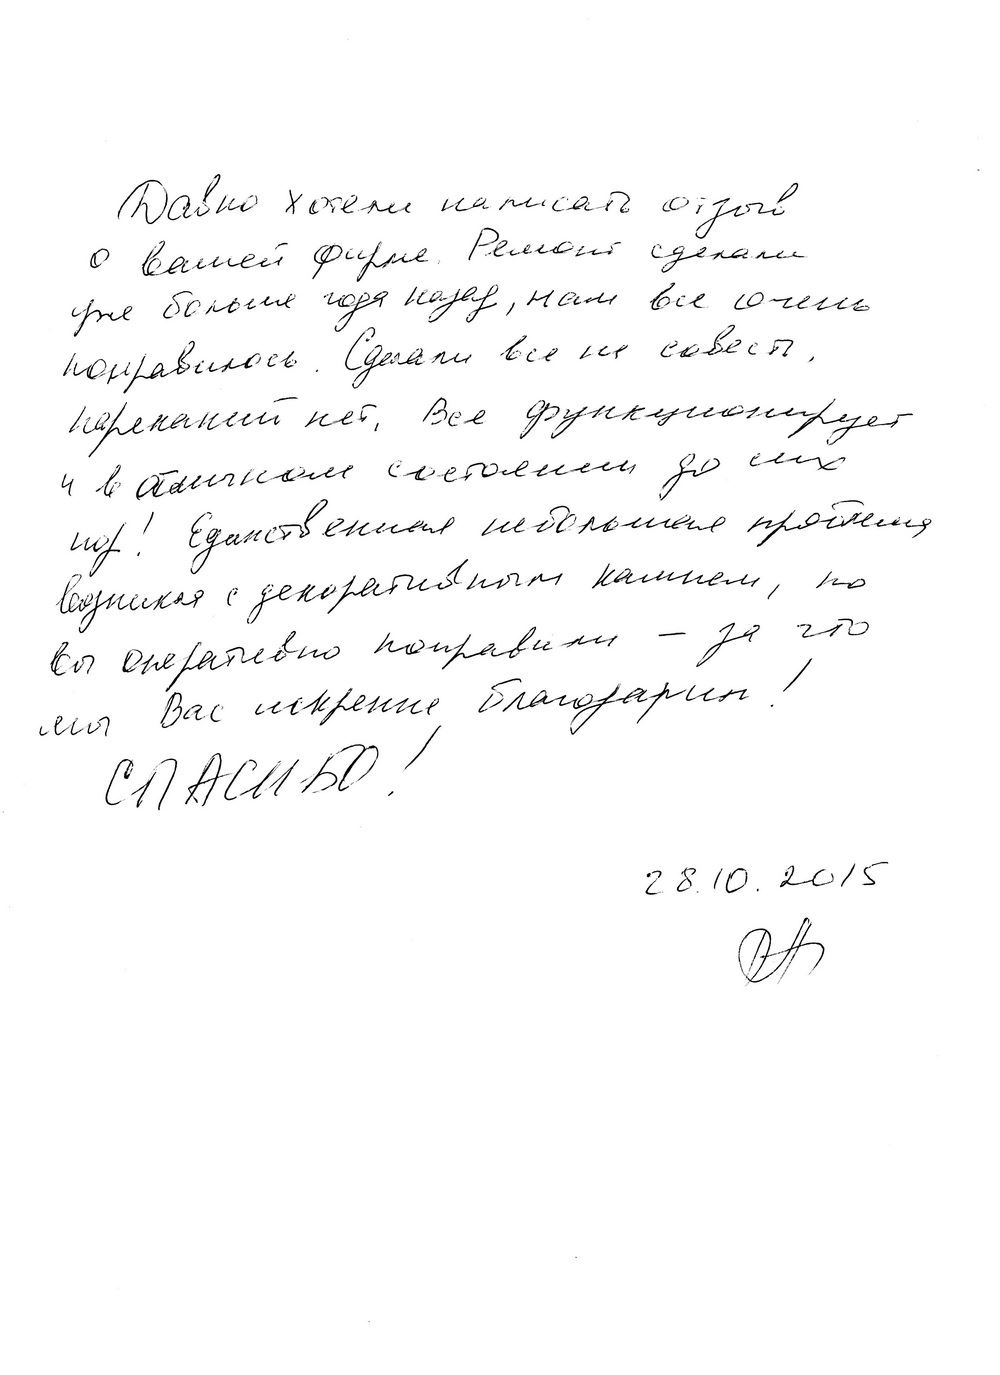 Давно хотели написать отзыв
о вашей фирме. Ремонт сделали
уже больше года назад, нам все очень
понравилось. Сделали все на совесть,
нареканий нет. Все функционирует
и в отличном состоянии до сих
пор! Единственная небольшая проблема
возникла с декоративным камнем, но
вы оперативно поправили – за что
мы Вас искренне благодарим!
СПАСИБО!
28.10.2015